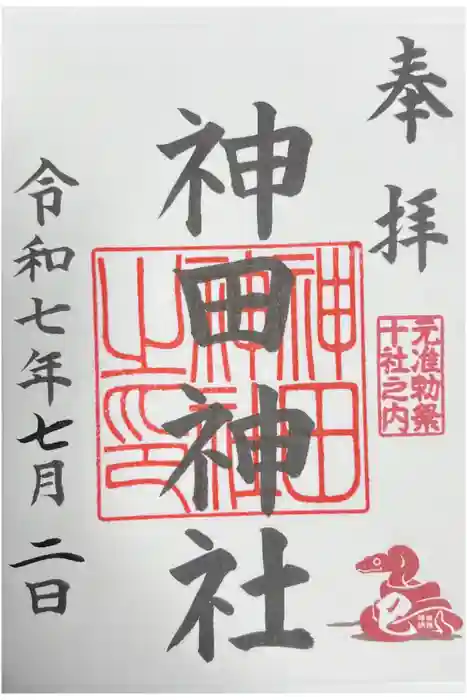 奉拝
元准勅祭
十社之内
神田神社
神田神社之印
巳
令和七年七月二日